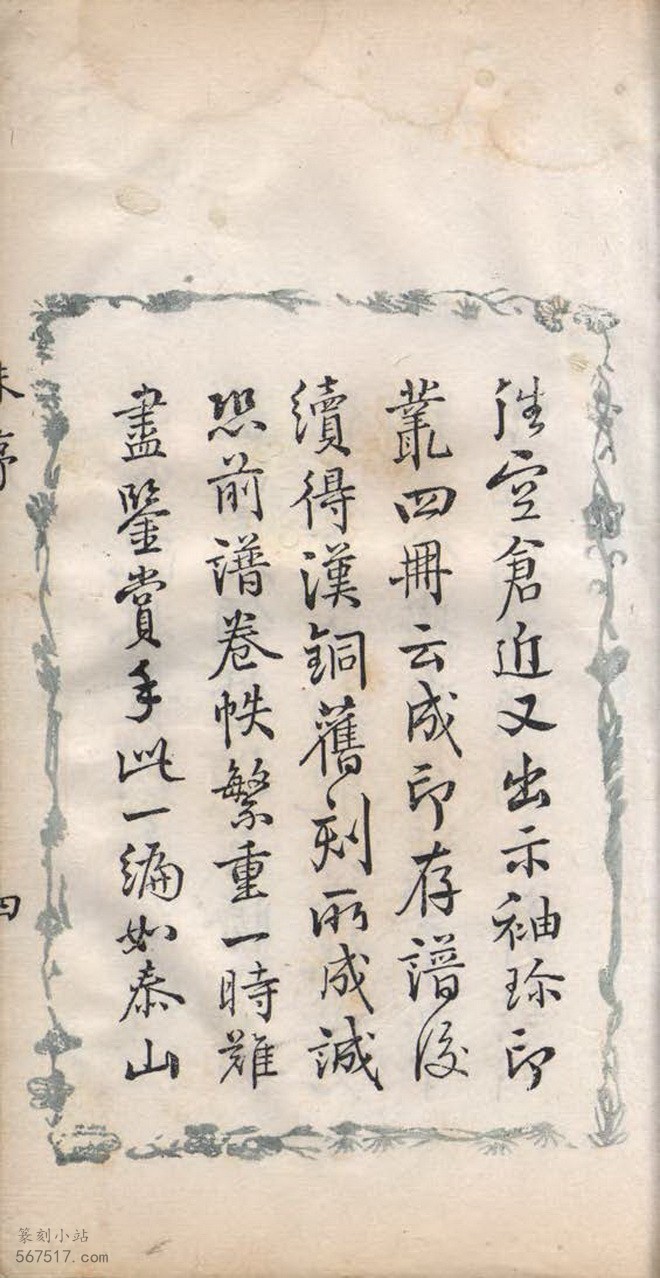 往空倉近又出示袖珍印
叢四冊云成印存譜後
續得漢銅舊刻所成誠
恐前譜卷帙繁重一時難
盡鑒賞手此一編如泰山
朱序
四
篆刻小站
567517.com